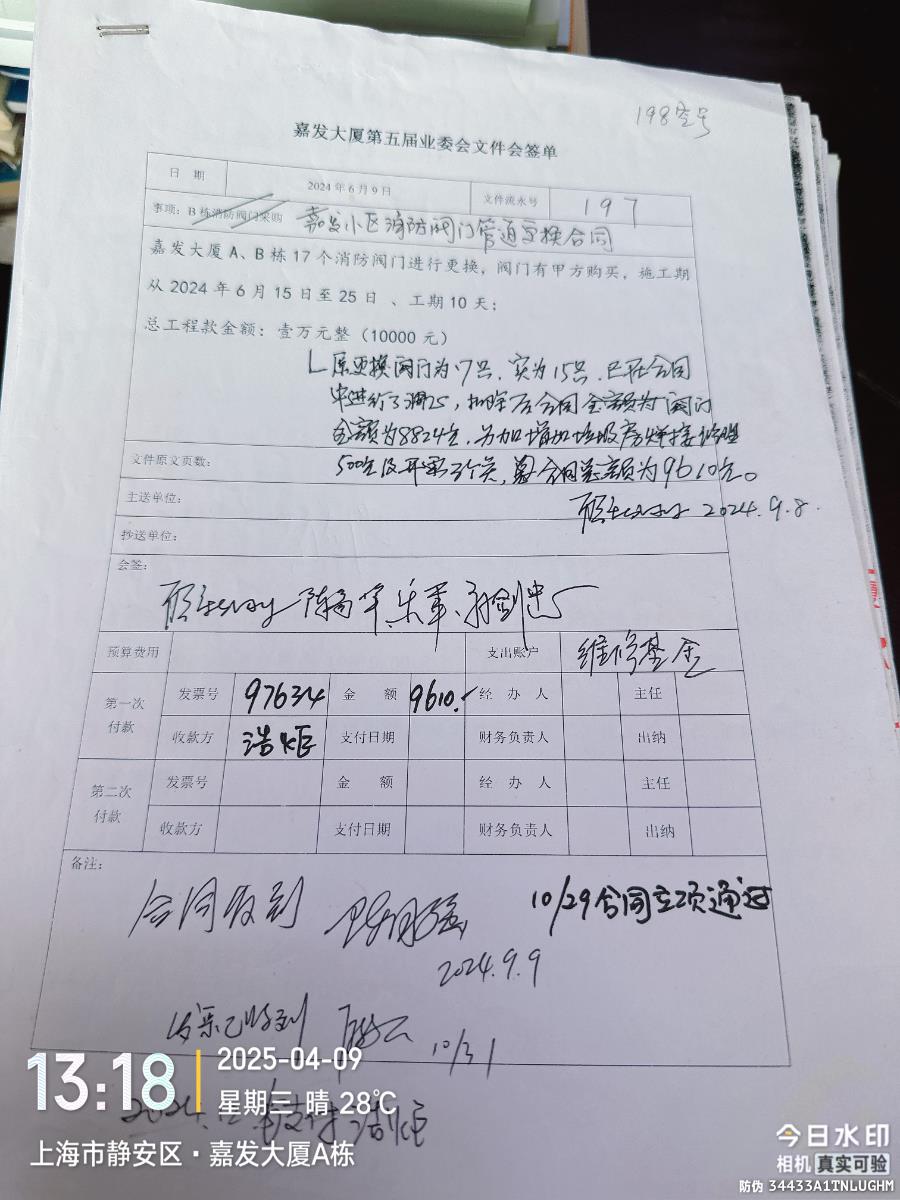 198空号
嘉发大厦第五届业委会文件会签单
日 期 2024年6月9日 文件流水号 197
事项：B栋消防阀门采购 嘉发小区消防阀门管道更换合同
嘉发大厦A、B栋17个消防阀门进行更换，阀门有甲方购买，施工期
从2024年6月15日至25日 、工期10天；
总工程款金额：壹万元整（10000元）
原更换阀门为17只，实为15只，已在合同
中进行了调整，扣除后合同金额为阀门
金额为8824元，另加增加垃圾房焊接修理
500元及开票3个点，合同总金额为9610元。
文件原文页数：
2024.9.8.
主送单位：
抄送单位：
会签：
预算费用 支出账户 维修基金
第一次付款 发票号 97634 金 额 9610.- 经 办 人 主任
收款方 浩炬 支付日期 财务负责人 出纳
第二次付款 发票号 金 额 经 办 人 主任
收款方 支付日期 财务负责人 出纳
备注：
合同收到
10/29合同立项通过
2024.9.9
发票已收到
10/31
2024.12 支付 浩炬
13:18
2025-04-09
星期三 晴 28℃
上海市静安区·嘉发大厦A栋
今日水印
相机 真实可验
防伪 34433A1TNLUGHM